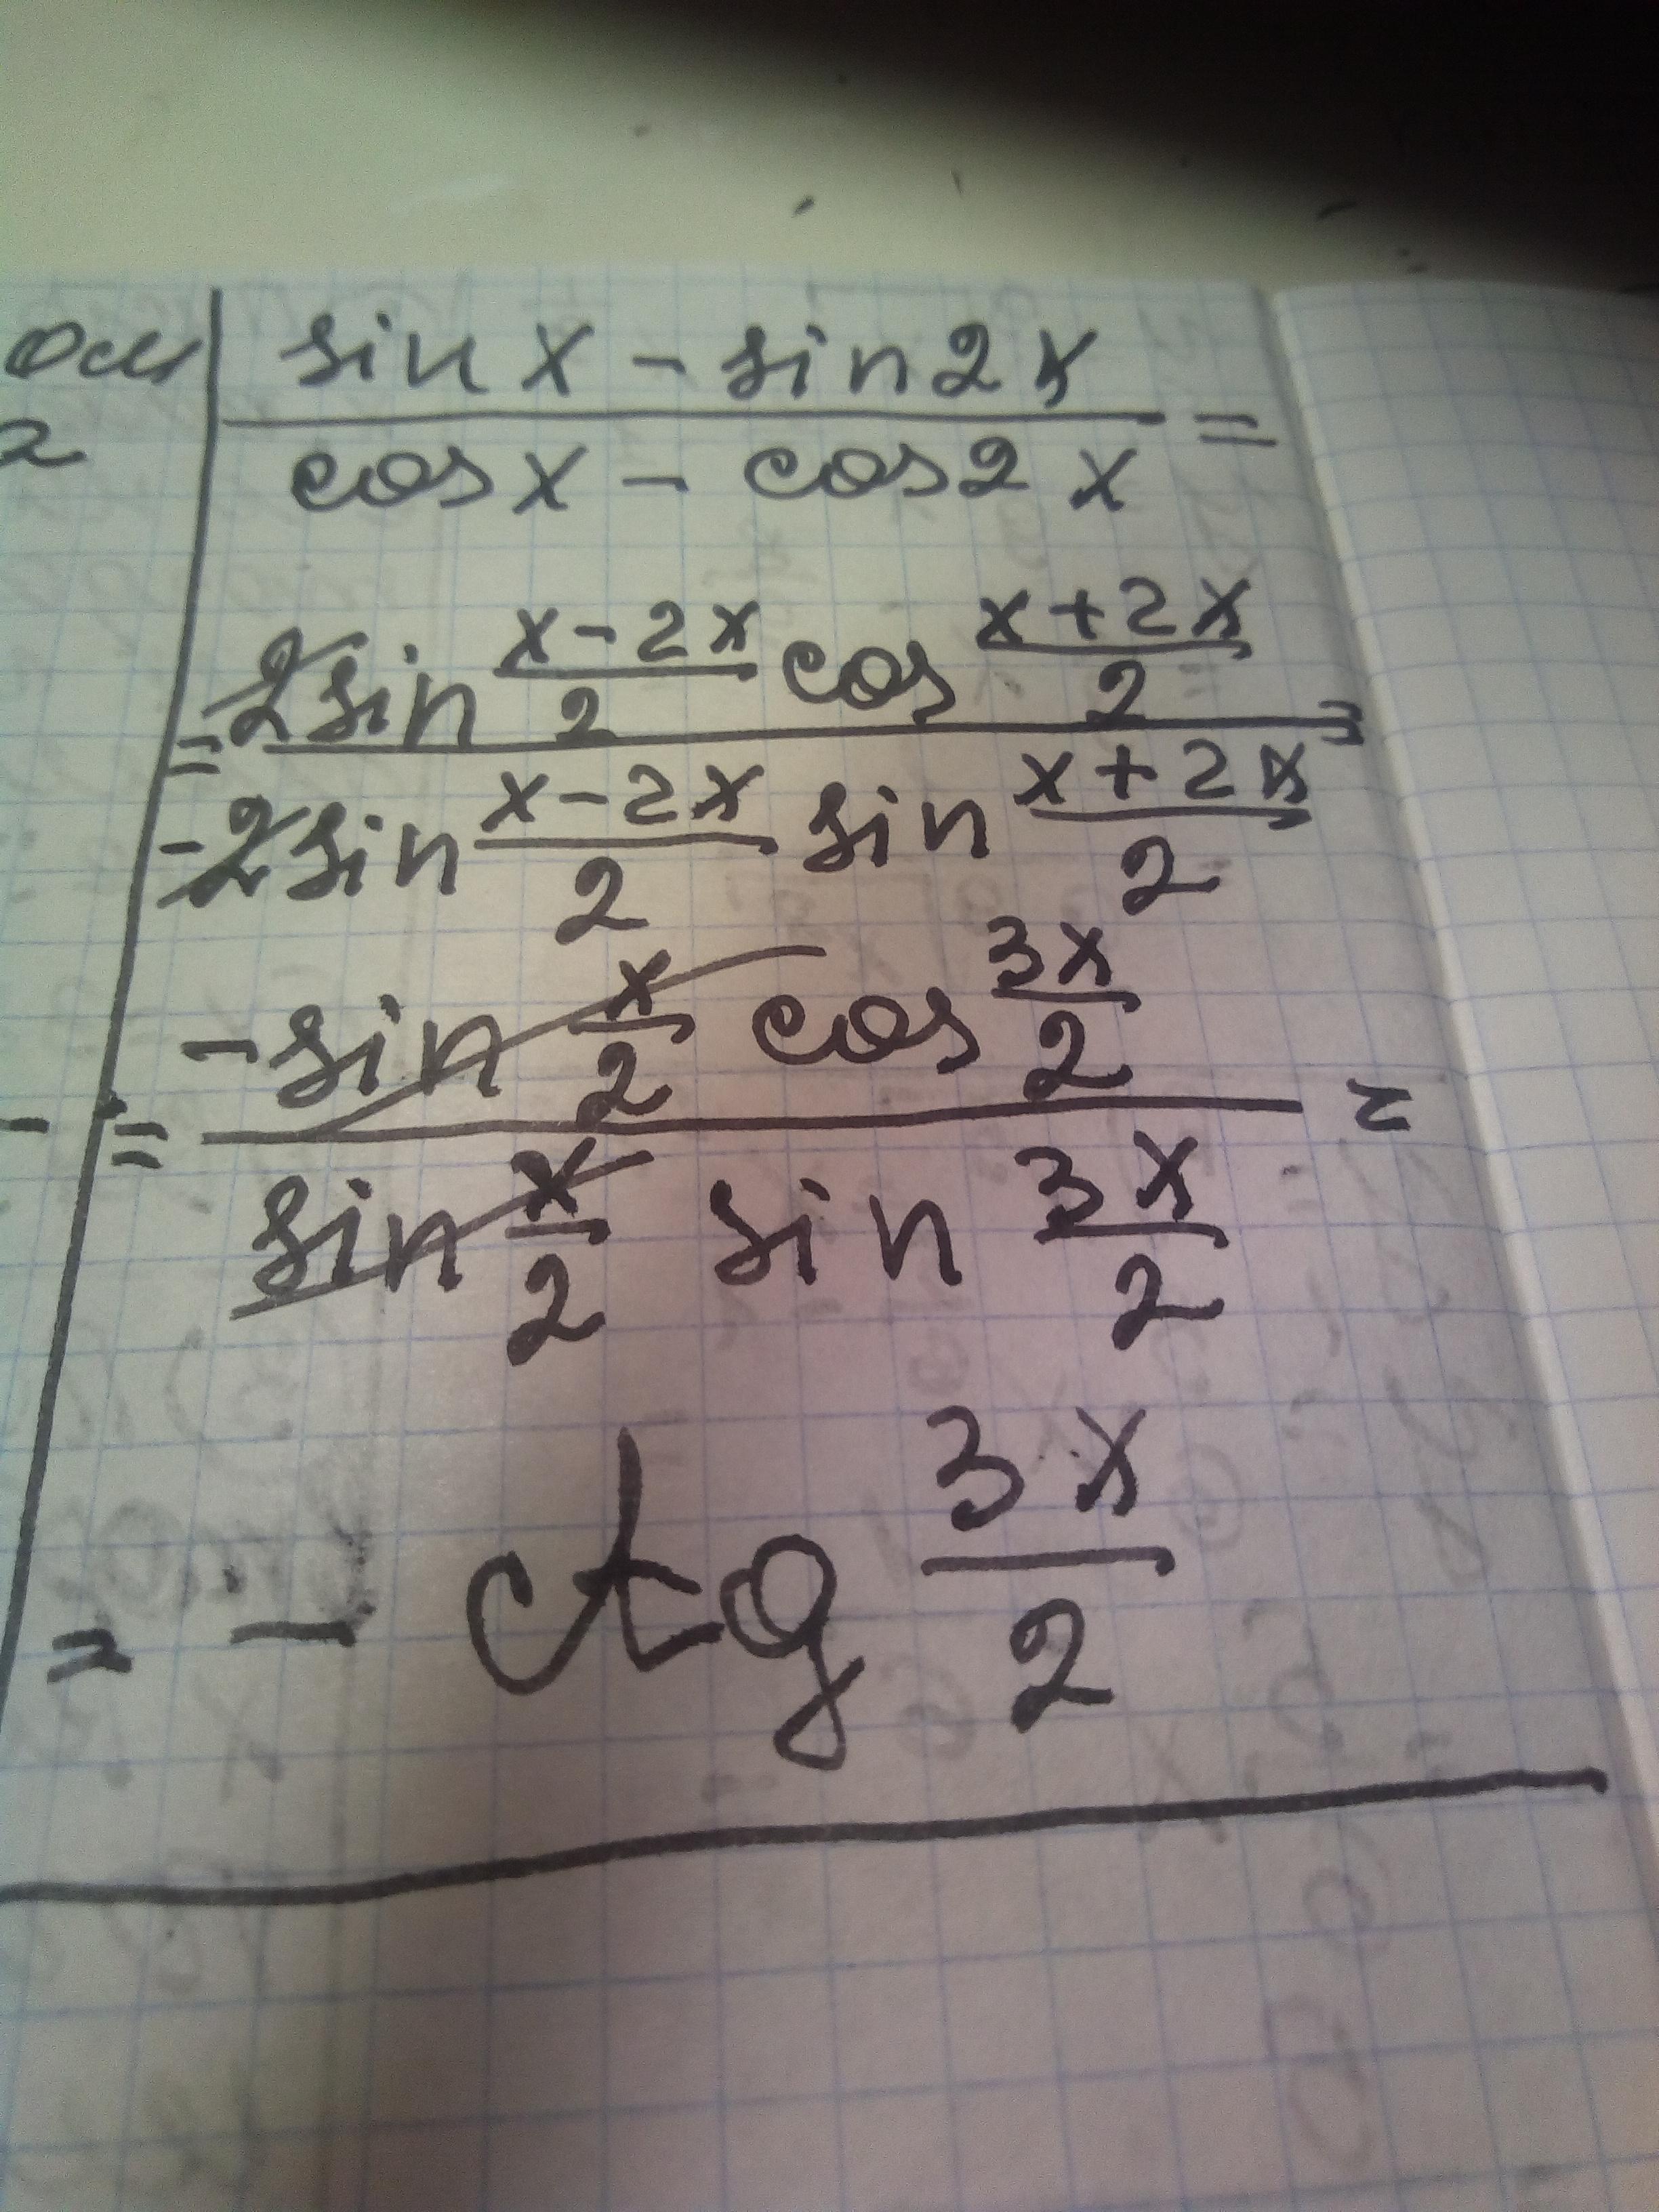 sin x - sin 2x
cos x - cos 2x =
= 2 sin (x - 2x)/2 cos (x + 2x)/2
-2 sin (x - 2x)/2 sin (x + 2x)/2 =
= - sin x/2 cos 3x/2
sin x/2 sin 3x/2 =
= - ctg 3x/2